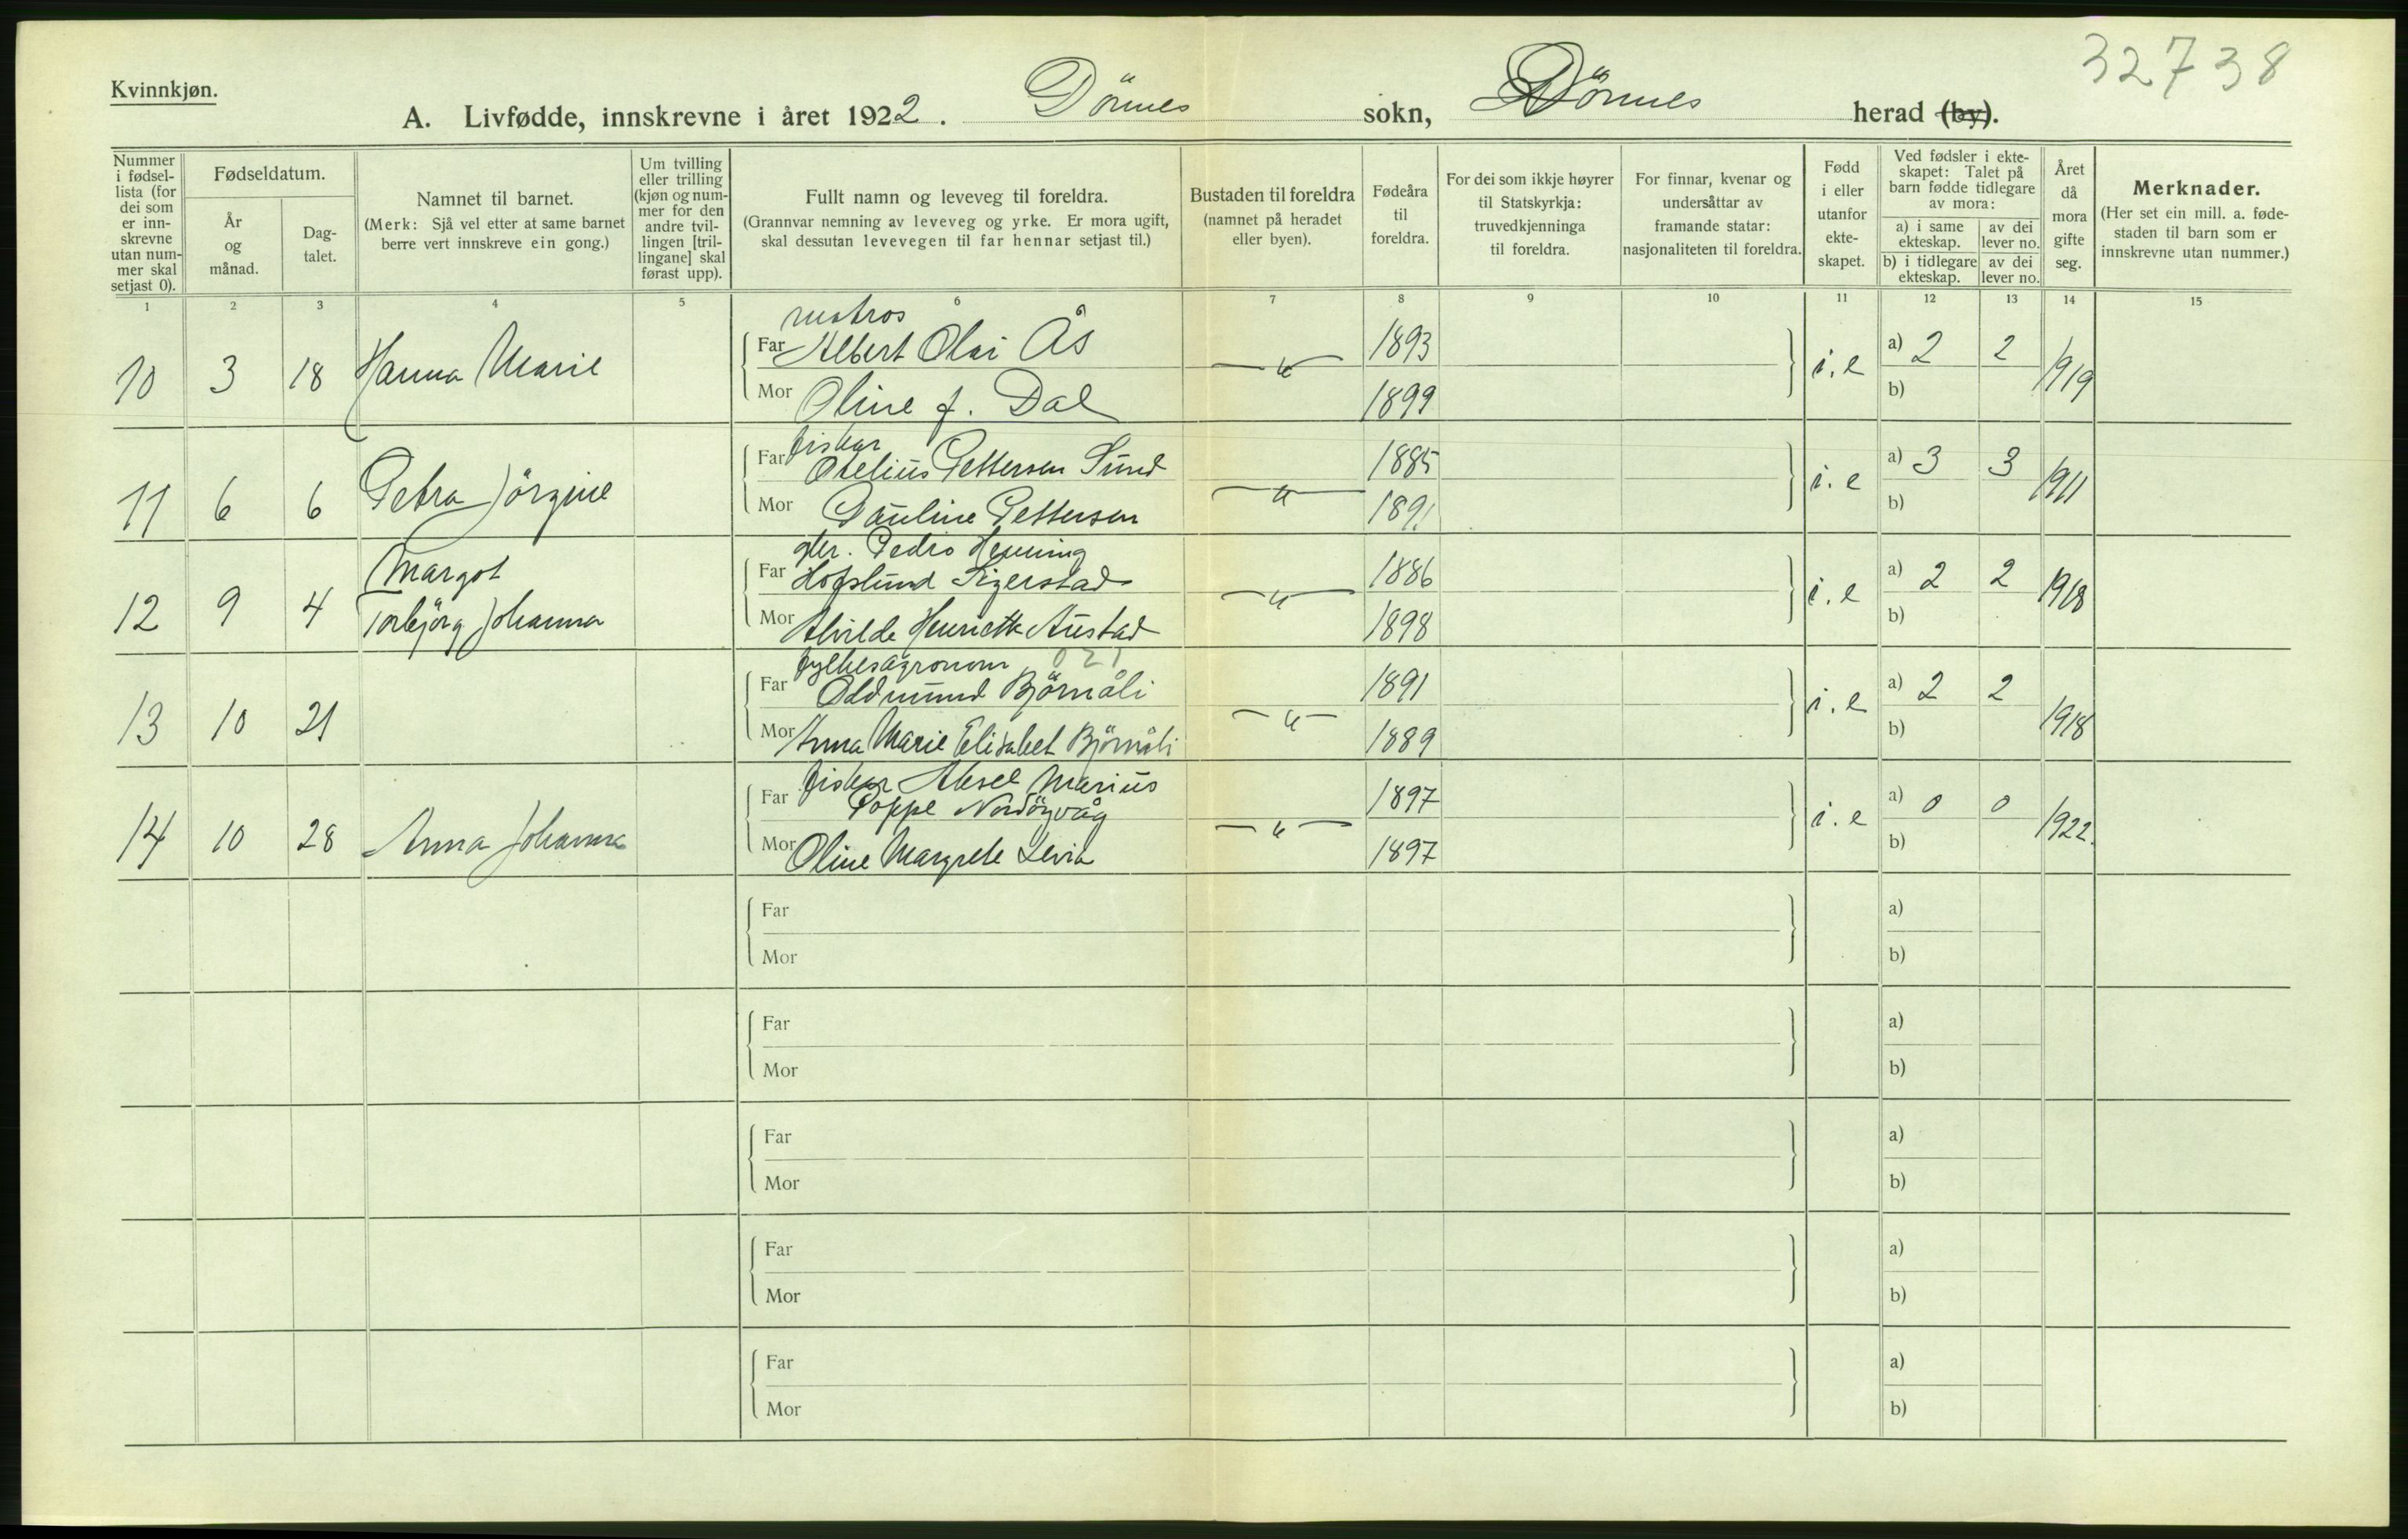 32738
Kvinnkjøn.
A. Livfødde, innskrevne i året 1922. Dönnes sokn, Dönnes herad (by).
Nummer i fødsel-lista (for dei som er inn-skrevne utan num-mer skal setjast 0).
Fødseldatum.
År og månad.
Dag-talet.
Namnet til barnet.
(Merk: Sjå vel etter at same barnet berre vert innskreve ein gong.)
Um tvilling eller trilling (kjøn og num-mer for den andre tvil-lingen [tril-lingane] skal førast upp).
Fullt namn og leveveg til foreldra.
(Grannvar nemning av leveveg og yrke. Er mora ugift, skal dessutan levevegen til far hennar setjast til.)
Bustaden til foreldra (namnet på heradet eller byen).
Fødeåra til foreldra.
For dei som ikkje høyrer til Statskyrkja: truvedkjenninga til foreldra.
For finnar, kvenar og undersåttar av framande statar: nasjonaliteten til foreldra.
Fødd i eller utanfor ekte-skapet.
Ved fødsler i ekte-skapet: Talet på barn fødde tidlegare av mora:
a) i same ekteskap. av dei lever no.
b) i tidlegare ekteskap. av dei lever no.
Året då mora gifte seg.
Merknader.
(Her set ein mill. a. føde-staden til barn som er innskrevne utan nummer.)
1 2 3 4 5 6 7 8 9 10 11 12 13 14 15
matros
10 3 18 Hanna Marie Far Albert Olai Ås — " — 1893 i.e a) 2 2 1919
Mor Oline f. Dal 1899 b)
fiskar
11 6 6 Petra Jörgine Far Otelius Pettersen Sund — " — 1885 i.e a) 3 3 1911
Mor Pauline Pettersen 1891 b)
Pedro Henning
12 9 4 Margot Torbjörg Johanna Far Hofslund Sigerstad — " — 1886 i.e a) 2 2 1918
Mor Alvilde Henriette Austad 1898 b)
fylkesagronom 021
13 10 21 Far Oddmund Björnåli — " — 1891 i.e a) 2 2 1918
Mor Anna Marie Elisabet Björnåli 1889 b)
fiskar Aksel Marius
14 10 28 Anna Johanna Far Poppe Nordöyvåg — " — 1897 i.e a) 0 0 1922.
Mor Oline Margrete Levia 1897 b)
Far a)
Mor b)
Far a)
Mor b)
Far a)
Mor b)
Far a)
Mor b)
Far a)
Mor b)